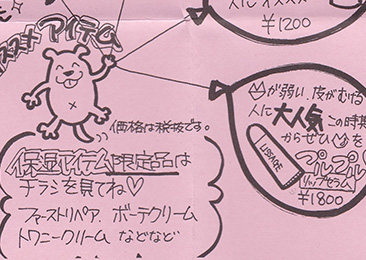 オススメアイテム
価格は税抜です。
保湿アイテム限定品は
チラシを見てね♡
ファーストリペア、ボーテクリーム
トワニークリーム などなど
人にオススメ
¥1200
が弱い、皮がむける
人に大人気 この時期
からぜひ を
プルプル
リップセラム
¥1800
LISSAGE